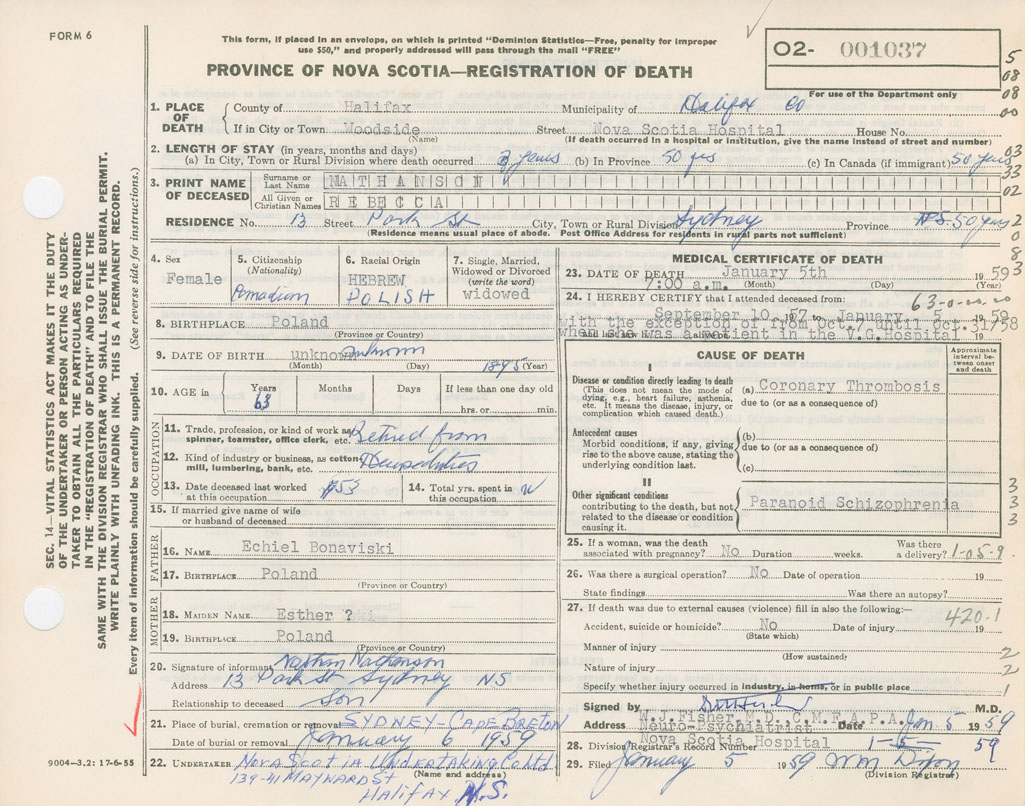 FORM 6
This form, if placed in an envelope, on which is printed "Dominion Statistics—Free, penalty for improper
use $50," and properly addressed will pass through the mail "FREE"
PROVINCE OF NOVA SCOTIA—REGISTRATION OF DEATH
02- 001037
For use of the Department only
5
08
08
00
03
33
02
2
0
8
3
SEC. 14—VITAL STATISTICS ACT MAKES IT THE DUTY
OF THE UNDERTAKER OR PERSON ACTING AS UNDER-
TAKER TO OBTAIN ALL THE PARTICULARS REQUIRED
IN THE "REGISTRATION OF DEATH" AND TO FILE THE
SAME WITH THE DIVISION REGISTRAR WHO SHALL ISSUE THE BURIAL PERMIT.
WRITE PLAINLY WITH UNFADING INK. THIS IS A PERMANENT RECORD.
Every item of information should be carefully supplied. (See reverse side for instructions.)
1. PLACE OF DEATH County of Halifax Municipality of Halifax Co
If in City or Town Woodside Street Nova Scotia Hospital House No.
(Name) (If death occurred in a hospital or institution, give the name instead of street and number)
2. LENGTH OF STAY (in years, months and days)
(a) In City, Town or Rural Division where death occurred years (b) In Province 50 yrs (c) In Canada (if immigrant) 50 years
3. PRINT NAME OF DECEASED Surname or Last Name NATHANSON
All Given or Christian Names REBECCA
RESIDENCE No. 13 Street Park St City, Town or Rural Division Sydney Province N.S. 50 years
(Residence means usual place of abode. Post Office Address for residents in rural parts not sufficient)
4. Sex Female
5. Citizenship (Nationality) Canadian
6. Racial Origin HEBREW POLISH
7. Single, Married, Widowed or Divorced (write the word) widowed
8. BIRTHPLACE Poland
(Province or Country)
9. DATE OF BIRTH unknown unknown 1895 (Year)
(Month) (Day)
10. AGE in Years 63 Months Days If less than one day old
hrs. or min.
OCCUPATION
11. Trade, profession, or kind of work as spinner, teamster, office clerk, etc. Retired from
12. Kind of industry or business, as cotton mill, lumbering, bank, etc.
13. Date deceased last worked at this occupation 1953
14. Total yrs. spent in this occupation
15. If married give name of wife or husband of deceased
FATHER
16. NAME Echiel Bonaviski
17. BIRTHPLACE Poland
(Province or Country)
MOTHER
18. MAIDEN NAME Esther ?
19. BIRTHPLACE Poland
(Province or Country)
20. Signature of informant Nathan Nathanson
Address 13 Park St Sydney NS
Relationship to deceased son
21. Place of burial, cremation or removal SYDNEY-CAPE BRETON
Date of burial or removal January 6 1959
22. UNDERTAKER Nova Scotia Undertaking Co Ltd
(Name and address)
139-41 MAYNARD St
Halifax N.S.
9004—3.2: 17-6-55
MEDICAL CERTIFICATE OF DEATH
23. DATE OF DEATH January 5th 1959
7:00 a.m. (Month) (Day) (Year)
24. I HEREBY CERTIFY that I attended deceased from: 63-0-00.00
September 10 1957 to January 5 1959
with the exception of from Oct.7 until Oct.31/58
when she was a patient in the V.G.Hospital
CAUSE OF DEATH
Approximate interval between onset and death
I
Disease or condition directly leading to death
(This does not mean the mode of dying, e.g., heart failure, asthenia, etc. It means the disease, injury, or complication which caused death.)
(a) Coronary Thrombosis
due to (or as a consequence of)
Antecedent causes
Morbid conditions, if any, giving rise to the above cause, stating the underlying condition last.
(b)
due to (or as a consequence of)
(c)
II
Other significant conditions contributing to the death, but not related to the disease or condition causing it.
Paranoid Schizophrenia
3
3
3
3
25. If a woman, was the death associated with pregnancy? No Duration weeks. Was there a delivery? 1-05-9.
26. Was there a surgical operation? No Date of operation 19
State findings Was there an autopsy?
27. If death was due to external causes (violence) fill in also the following:— 420.1
Accident, suicide or homicide? No Date of injury 19
(State which)
Manner of injury 2
(How sustained)
Nature of injury 2
Specify whether injury occurred in industry, in home, or in public place 1
Signed by M.D.
W.J.Fisher, M.D.,C.M.F.A.P.A.
Address Neuro-Psychiatrist Date Jan. 5 1959
Nova Scotia Hospital
28. Division Registrar's Record Number 1-5 59
29. Filed January 5 1959 Wm Dixon
(Division Registrar)